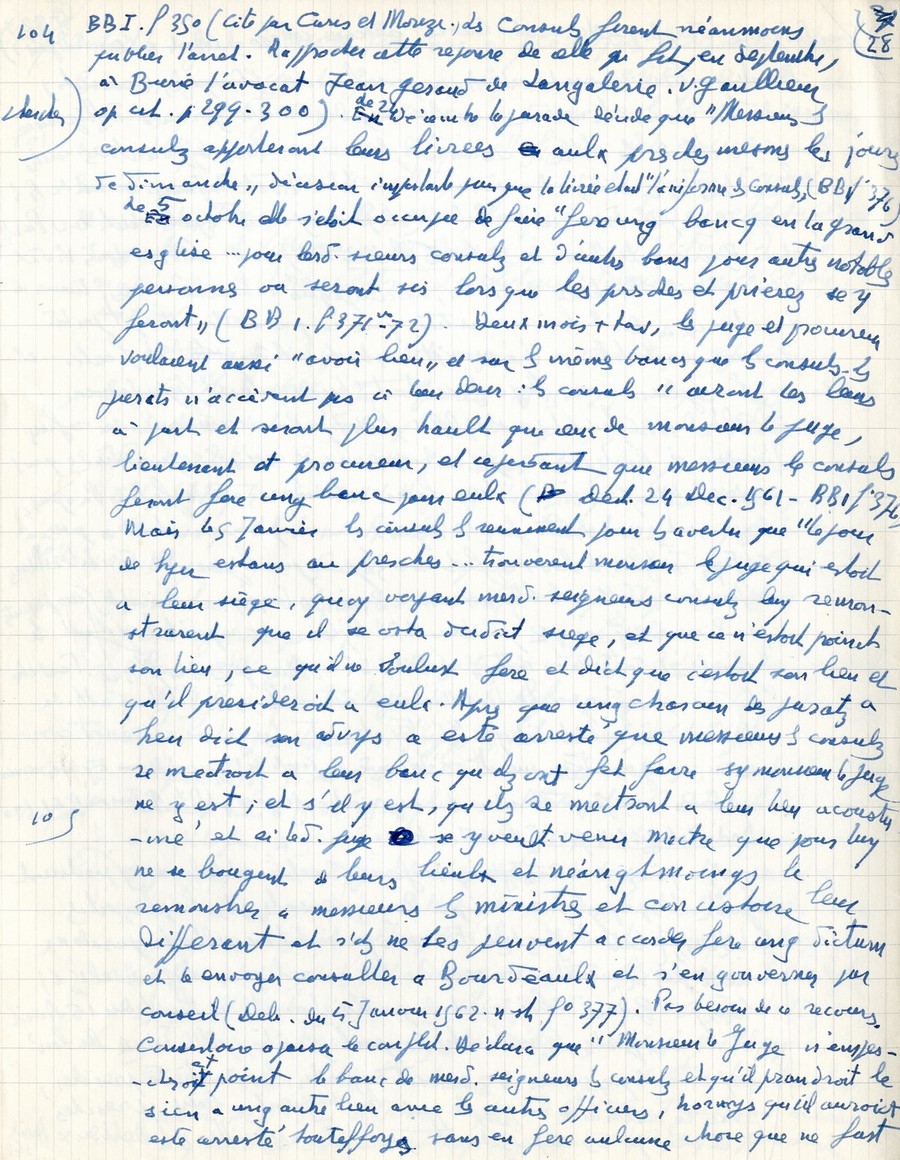 104 BB I. f° 350 (cité par Cures et Moreze. Les Consuls firent néanmoins
28
publier l'arret. Rapprocher cette reponse de celle que fit, en septembre,
à Burie l'avocat Jean Geraud de Langalerie. v. Gaullieur
op. cit. p 299-300). de 24 Décembre la jurade décide que "Messieurs ls
consulz apporteront leurs livrées aulx presches mesmes les jours
de dimanche", décision importante puisque la livrée était "l'uniforme ds consuls, (BB I f° 376)
de 5 octobre elle s'était occupée de faire "fere ung bancq en la grand
esglise ... pour lesd. sieurs consulz et d'autres bancs pour autres notables
personnes ou seront sis lorsque les presches et prieres se y
feront" (BB 1. f° 371 v°-72). Deux mois + tard, le juge et procureur
voulaient aussi "avoir lieu" et sur ls mêmes bancs que ls consuls. Les
jurats n'accèdent pas à leur desir : ls consuls "auront les leurs
à part et seront plus hault que ceux de monsieur le juge,
lieutenant et procureur, et cependant que messieurs ls consuls
feront fere ung banc pour eulx (Delib. 24 Dec. 1561 - BB 1 f° 376)
Mais le 5 Janvier les consuls se reunissent pour les avertir que "le jour
de hyer estans au presches ... trouverent monsieur le juge qui estoit
a leur siège, quoy voyant mesd. seigneurs consulz luy remon-
strarent que il se osta dudict siege, et que ce n'estoit point
son lieu, ce qu'il ne voulut fere et dict que c'estoit son lieu et
qu'il presideroit a eulx. Apres que ung chascun des juratz a
heu dict son advys a esté arresté que messieurs ls consulz
se mectront a leur banc qu'ilz ont fet faire sy monsieur le juge
ne y est ; et s'il y est, qu'ilz se mectront a leur lieu acoustu
105 -mé et si led. juge se y veult venir mectre que pour luy
ne se bougent de leurs lieulx et néangtmoings le
remonstrer a messieurs ls ministres et consistoire leur
differant et s'ilz ne les peuvent accorder fere ung dictum
et le envoyer consulter a Bourdeaulx et s'en gouverner par
conseil (Delib. du 5 Janvier 1562. n. st. f° 377). Pas besoin de ce recours.
Consistoire apaisa le conflit. Déclara que "Monsieur le Juge n'empes-
-cheroit point le banc de mesd. seigneurs ls consulz et qu'il prandroit le
sien a ung autre lieu avec les autres officiers, horsmys qu'il auroict
esté arresté touteffoys sans en fere aulcune chose que ne fust